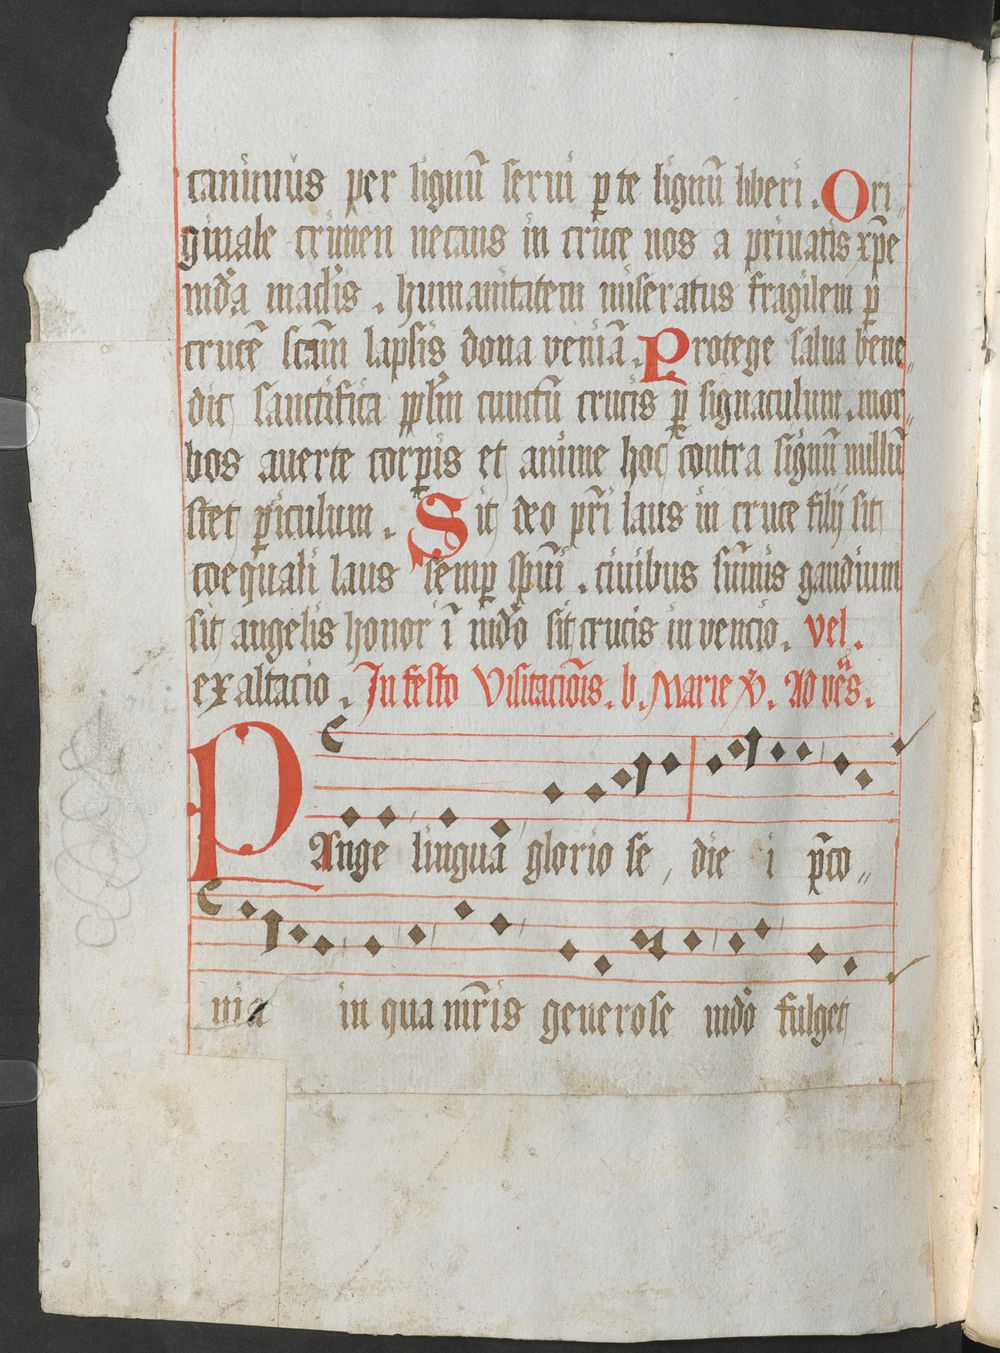 canimus per lignū serui p̲ te lignū liberi. Ori„
ginale crimen necans in cruce nos a priuatis xp̄e
mūda maclis. humanitatem miseratus fragilem p̲
crucē sc̄am lapsis dona veniā. Protege salua bene„
dic sanctifica pp̄lm cunctū crucis p̲ signaculum. mor„
bos auerte corp̲is et anime hoc contra signū nullū
stet p̲iculum. Sit deo pr̄i laus in cruce filij sit
coequali laus semp̲ spūi. ciuibus sūmis gaudium
sit angelis honor ī mūdo sit crucis inuencio. vel.
exaltacio. In festo Visitacōis. b. Marie v̄. Ad ves̄.
Pange lingua gloriose, die i p̄co„
nia in qua mr̄is generose mūdo fulget